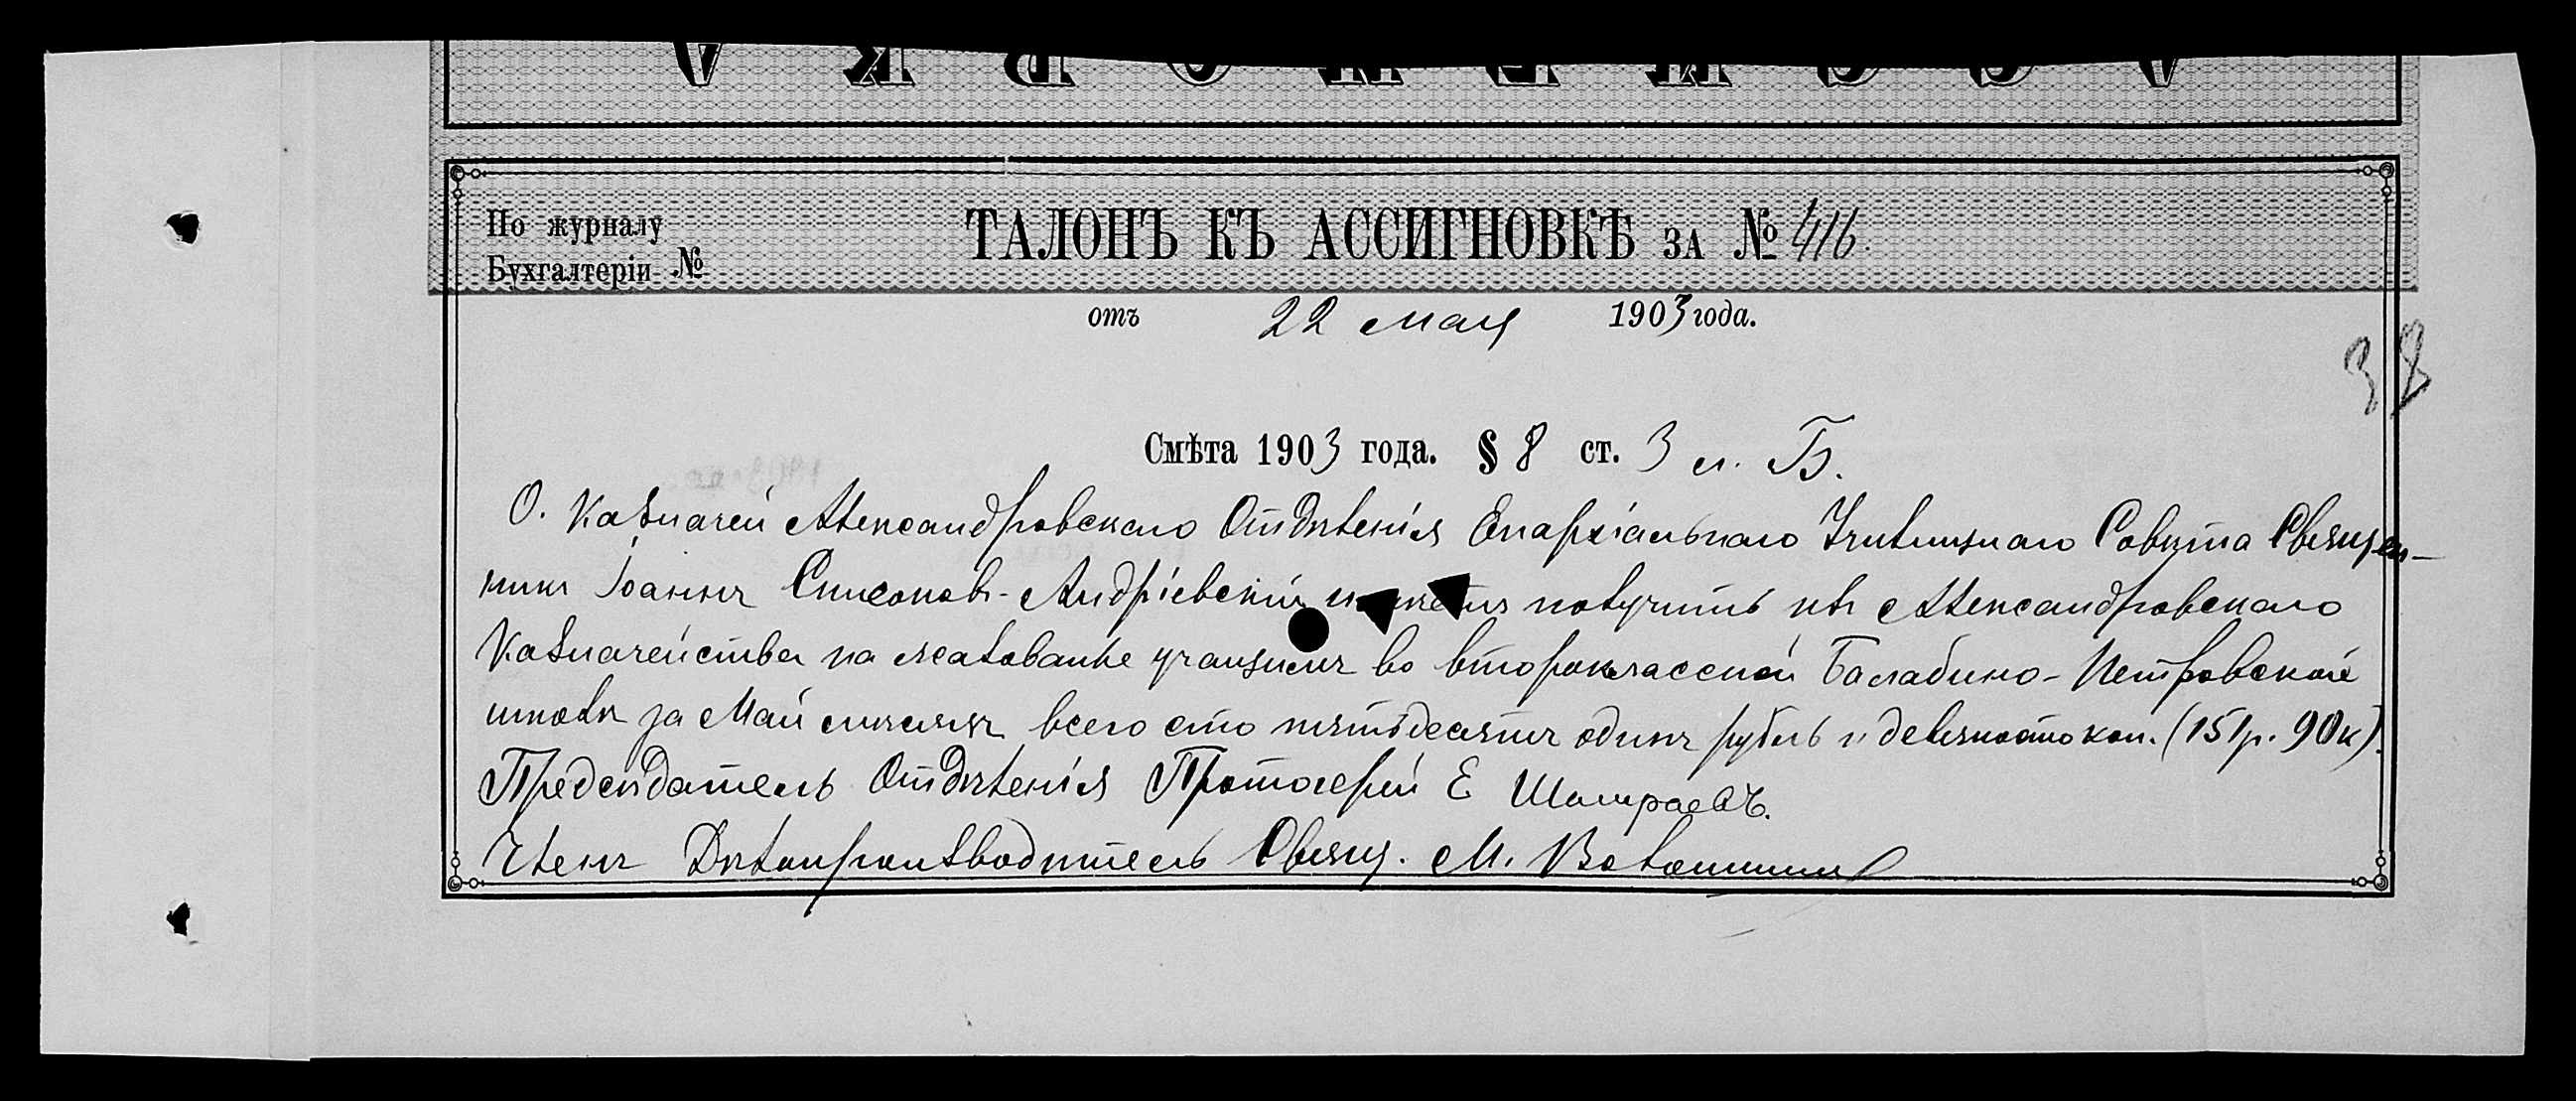 АССИГНОВКА
По журналу
Бухгалтеріи №
ТАЛОНЪ КЪ АССИГНОВКѢ ЗА № 416.
отъ 22 мая 1903 года.
32
Смѣта 1903 года. § 8 ст. 3 л. Б.
О. Казначей Александровскаго Отдѣленія Епархіальнаго Училищнаго Совѣта Священ-
никъ Іоаннъ Симоновъ-Андріевскій имѣетъ получить изъ Александровскаго
Казначейства на жалованье учащимъ во второклассной Балабино-Петровской
школѣ за Май мѣсяцъ всего сто пятьдесятъ одинъ рубль и девяносто коп. (151 р. 90 к).
Предсѣдатель Отдѣленія Протоіерей Е
Членъ Дѣлопроизводитель Свящ. М.